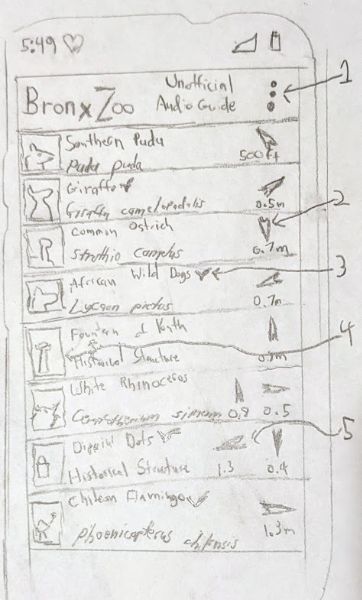 5:49
BronxZoo
Unofficial
Audio Guide
1
Southern Pudu
Pudu puda
500ft
Giraffe
Giraffa camelopardalis
0.5m
2
Common Ostrich
Struthio Camelus
0.7m
3
African Wild Dogs
Lycaon pictus
0.7m
4
Fountain
Historical Structure
White Rhinoceros
Ceratotherium simum 0.9 0.5
5
Historical Structure
1.3 0.4
Chilean Flamingo
Phoenicopterus chilensis
1.3m